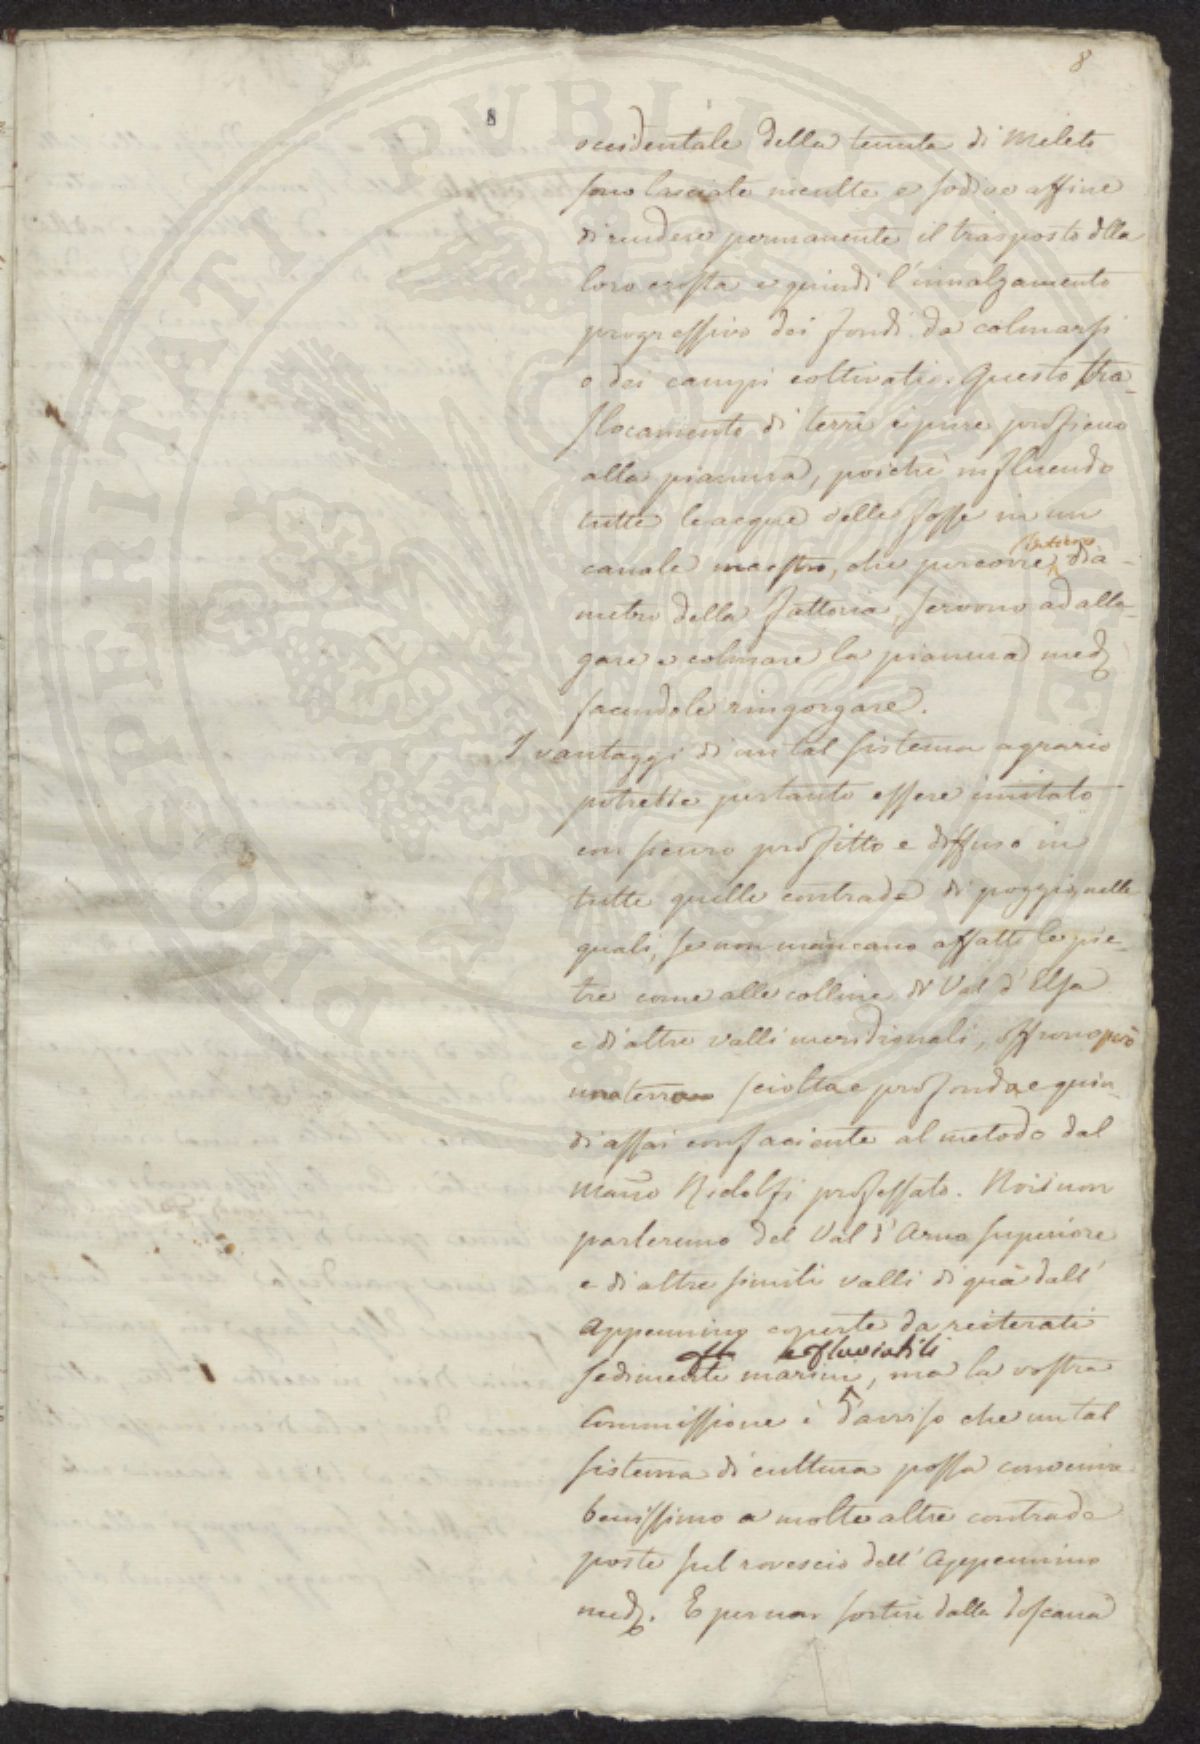 8
8
occidentale della tenuta di Meleto
sono lasciate inculte e sodive affine
di rendere permanente il trasposto dlla
loro crosta e quindi l'innalzamento
progressivo dei fondi da colmarsi
o dei campi coltivati. Questo tra-
slocamento di terre è pure proficuo
alla pianura, poichè influendo
tutte le acque delle fosse in un
canale maestro, che percorre l'intiero dia-
metro della fattoria, servono ad alla-
gare e colmare la pianura med.
facendole ringorgare.
I vantaggi di un tal sistema agrario
potrebbe pertanto essere imitato
con sicuro profitto e diffuso in
tutte quelle contrade di poggio, nelle
quali, se non mancano affatto le pie-
tre come alle colline di Val d'Elsa
e di altre valli meridionali, offrono però
una terra sciolta e profonda, e quin-
di assai confaciente al metodo dal
March. Ridolfi professato. Noi non
parleremo del Val d'Arno superiore
e di altre simili valli di quà dall'
Appennino coperte da reiterati
sedimenti marini e fluviatili, ma la vostra
Commissione è d'avviso che un tal
sistema di cultura possa convenire
benissimo a molte altre contrade
poste sul rovescio dell'Appennino
med. E per non sortire dalla Toscana
PROSPERITATI PUBLICAE AUGENDAE